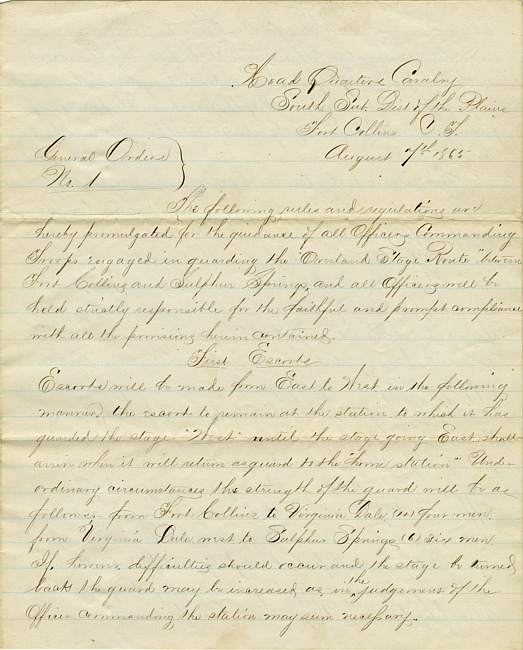 Head Quarters Cavalry
South Sub. Dist of the Plains
Fort Collins C. T.
August 7th 1865
General Orders
No. 1
The following rules and regulations are
hereby promulgated for the guidance of all Officers Commanding
Troops engaged in guarding the "Overland Stage Route" between
Fort Collins and Sulphur Springs, and all Officers will be
held strictly responsible for the faithful and prompt compliance
with all the provisions herein contained.
First. Escorts
Escorts will be made from East to West in the following
manner, the escort to remain at the station to which it has
guarded the stage "West" until the stage going East shall
arrive when it will return as guard to the "home station" Under
ordinary circumstances the strength of the guard will be as
follows:- from Fort Collins to Virginia Dale (4) four men.
from Virginia Dale west to Sulphur Springs (6) six men.
If, however difficulties should occur and the stage be turned
back, the guard may be increased as in the judgement of the
Officer commanding the station may seem necessary.